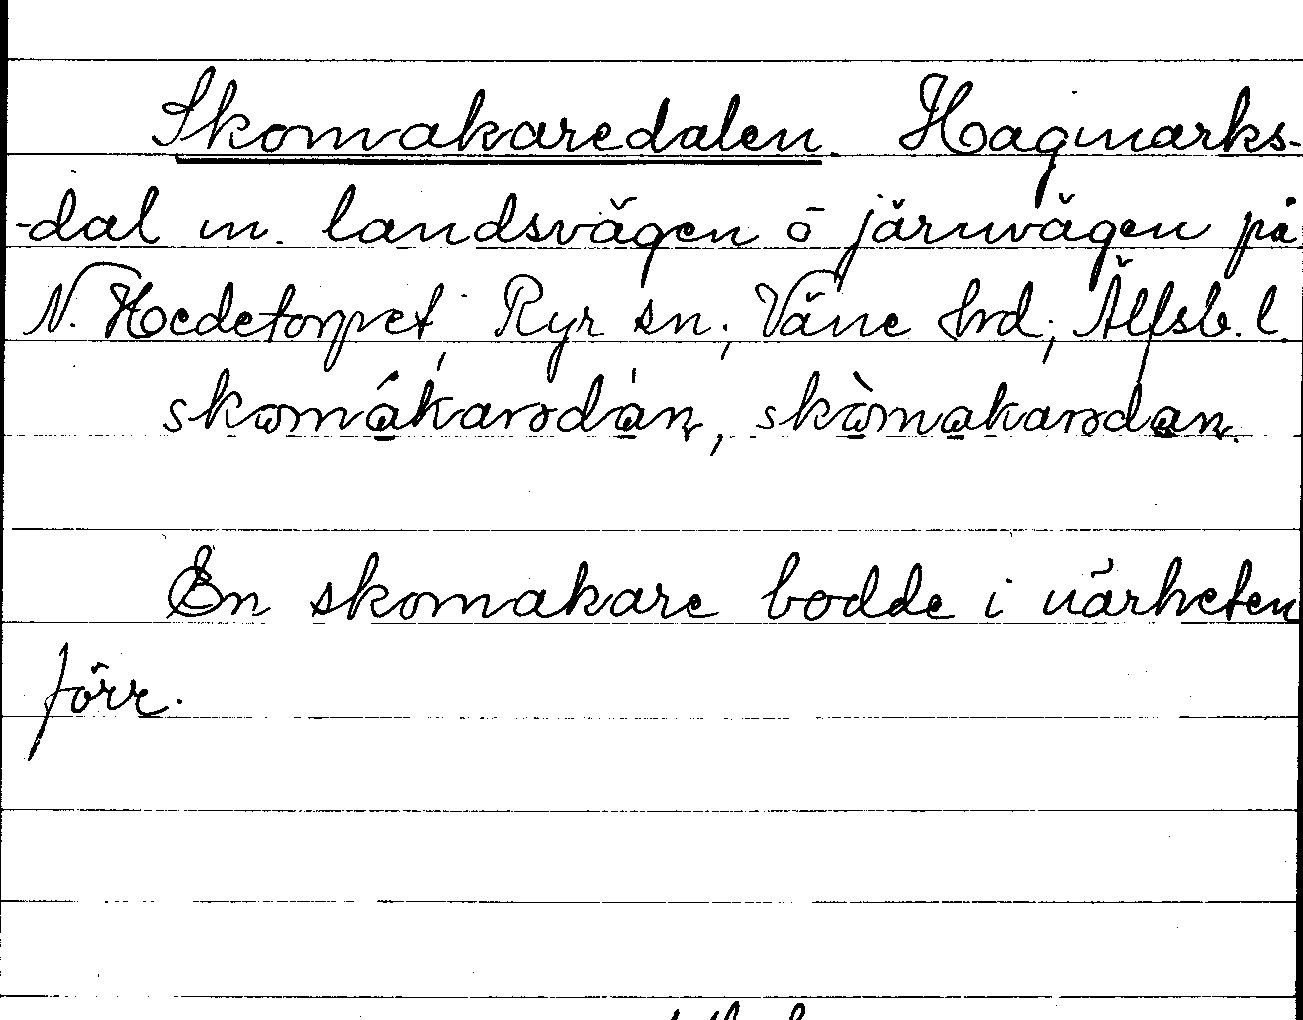 Skomakaredalen. Hagmarks-
-dal m. landsvägen o järnvägen på
N. Hedetorpet, Ryr sn; Väne hrd; Älfsb. l.
skomákarədàn, skòmakarədan.
En skomakare bodde i närheten
förr.